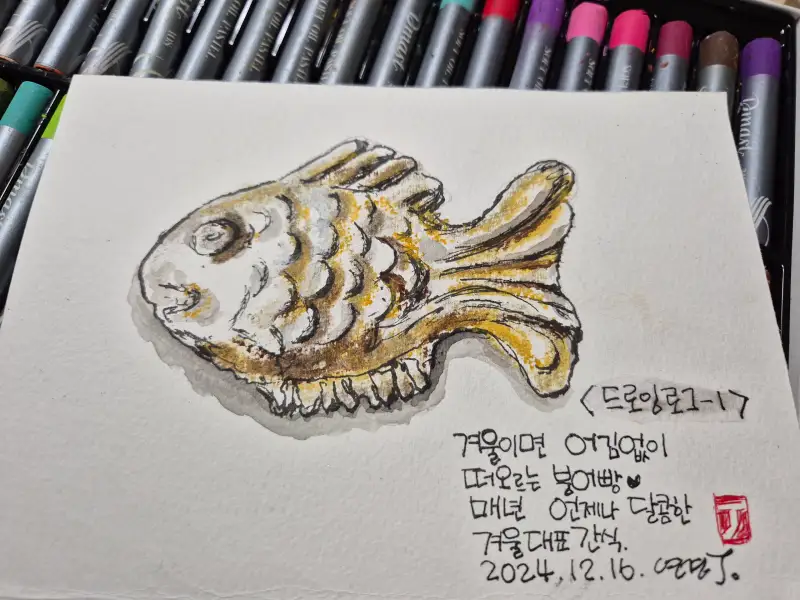 SOFT OIL PASTEL
<드로잉로그-1>
겨울이면 어김없이
떠오르는 붕어빵♥
매년 언제나 달콤한
겨울대표간식.
2024.12.16.